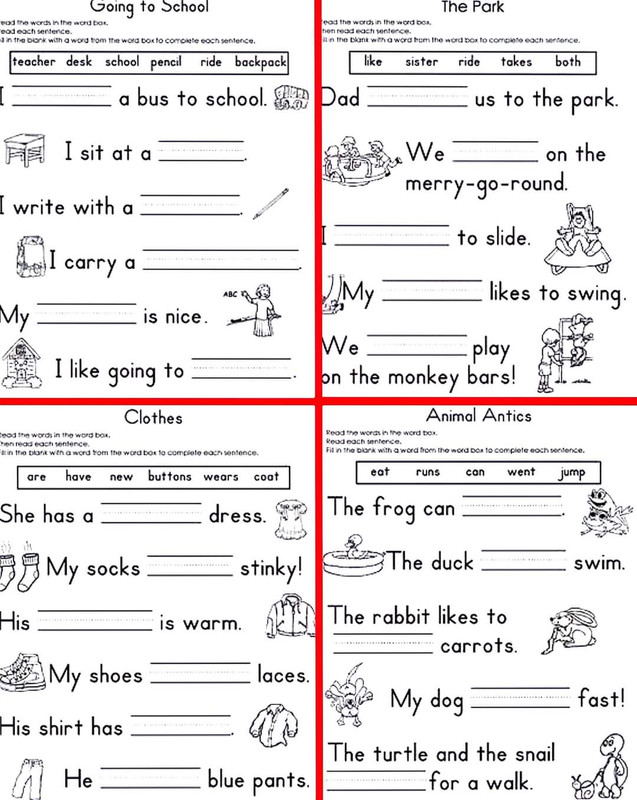 Going to School
Read the words in the word box.
read each sentence.
in the blank with a word from the word box to complete each sentence.
teacher desk school pencil ride backpack
I ________ a bus to school.
I sit at a ________.
I write with a ________.
I carry a ________.
ABC
My ________ is nice.
I like going to ________.
The Park
read the words in the word box.
hen read each sentence.
ill in the blank with a word from the word box to complete each sentence.
like sister ride takes both
Dad ________ us to the park.
We ________ on the
merry-go-round.
I ________ to slide.
My ________ likes to swing.
We ________ play
on the monkey bars!
Clothes
Read the words in the word box.
Then read each sentence.
Fill in the blank with a word from the word box to complete each sentence.
are have new buttons wears coat
She has a ________ dress.
My socks ________ stinky!
His ________ is warm.
My shoes ________ laces.
His shirt has ________.
He ________ blue pants.
Animal Antics
Read the words in the word box.
Read each sentence.
Fill in the blank with a word from the word box to complete each sentence.
eat runs can went jump
The frog can ________.
The duck ________ swim.
The rabbit likes to
________ carrots.
My dog ________ fast!
The turtle and the snail
________ for a walk.